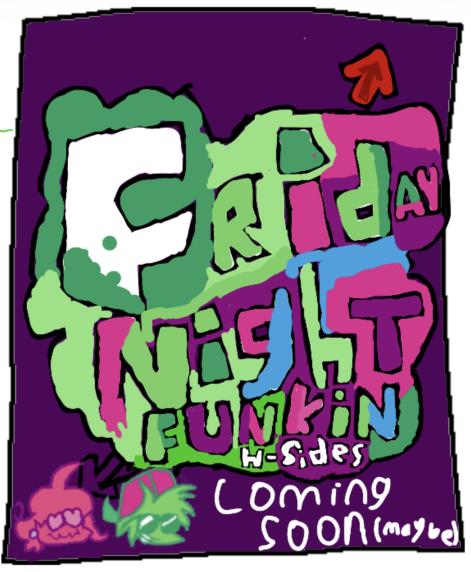 FRiDAY
NigHT
FUNKiN
H-Sides
Coming
Soon (maybe)